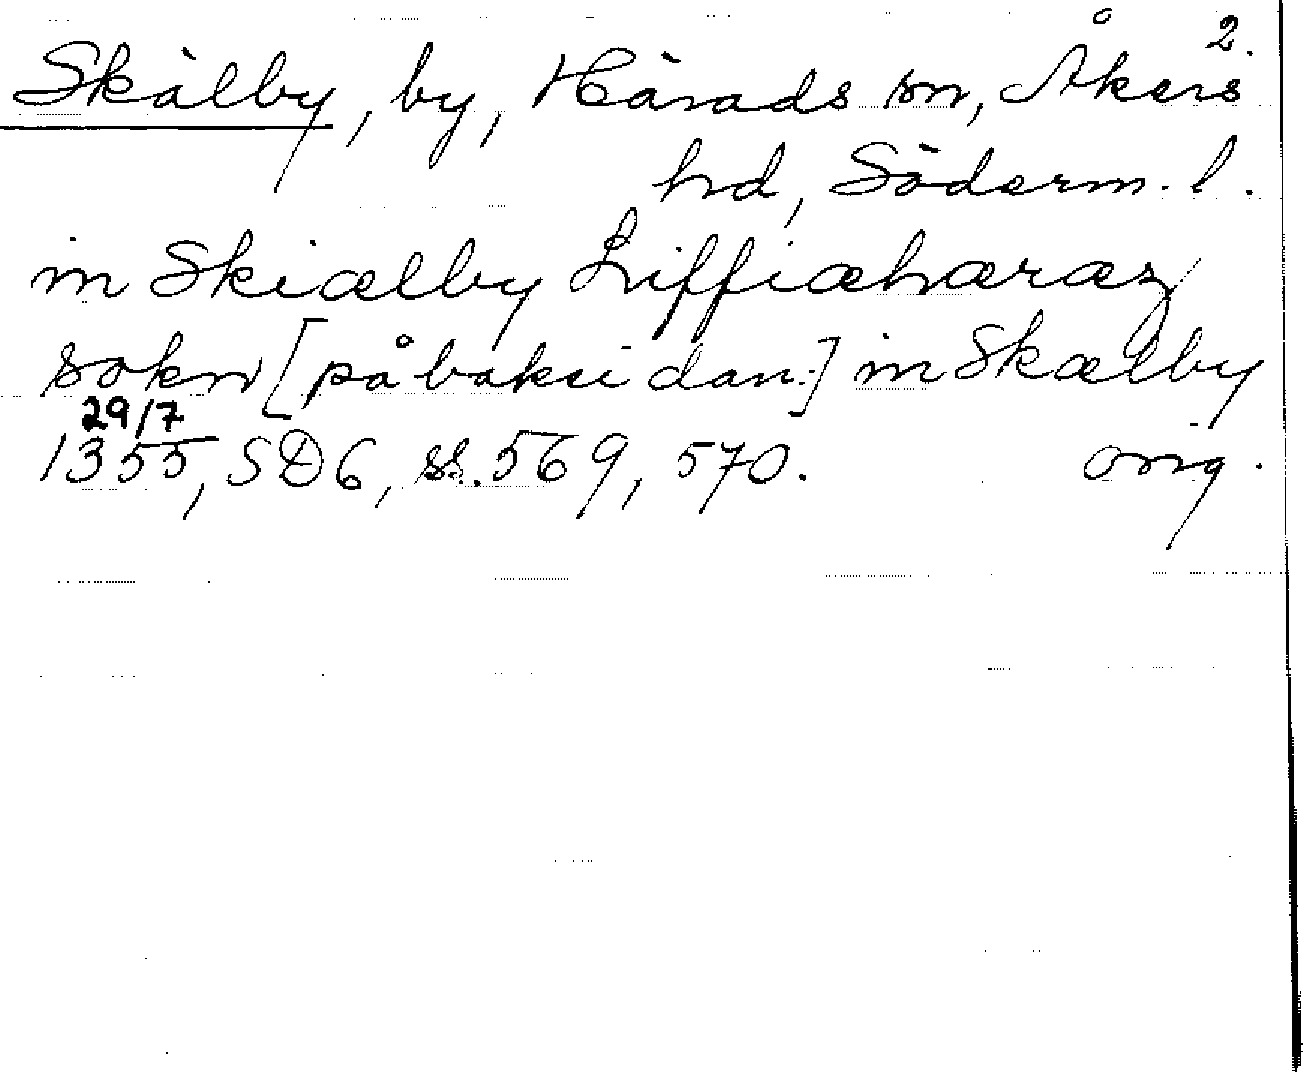 2.
Skälby, by, Härads sn, Åkers
hd, Söderm. l.
in Skiælby Liffiæhæræz
sokn [på baksidan:] in Skælby
29/7
1355, SD6, ss. 569, 570. orig.